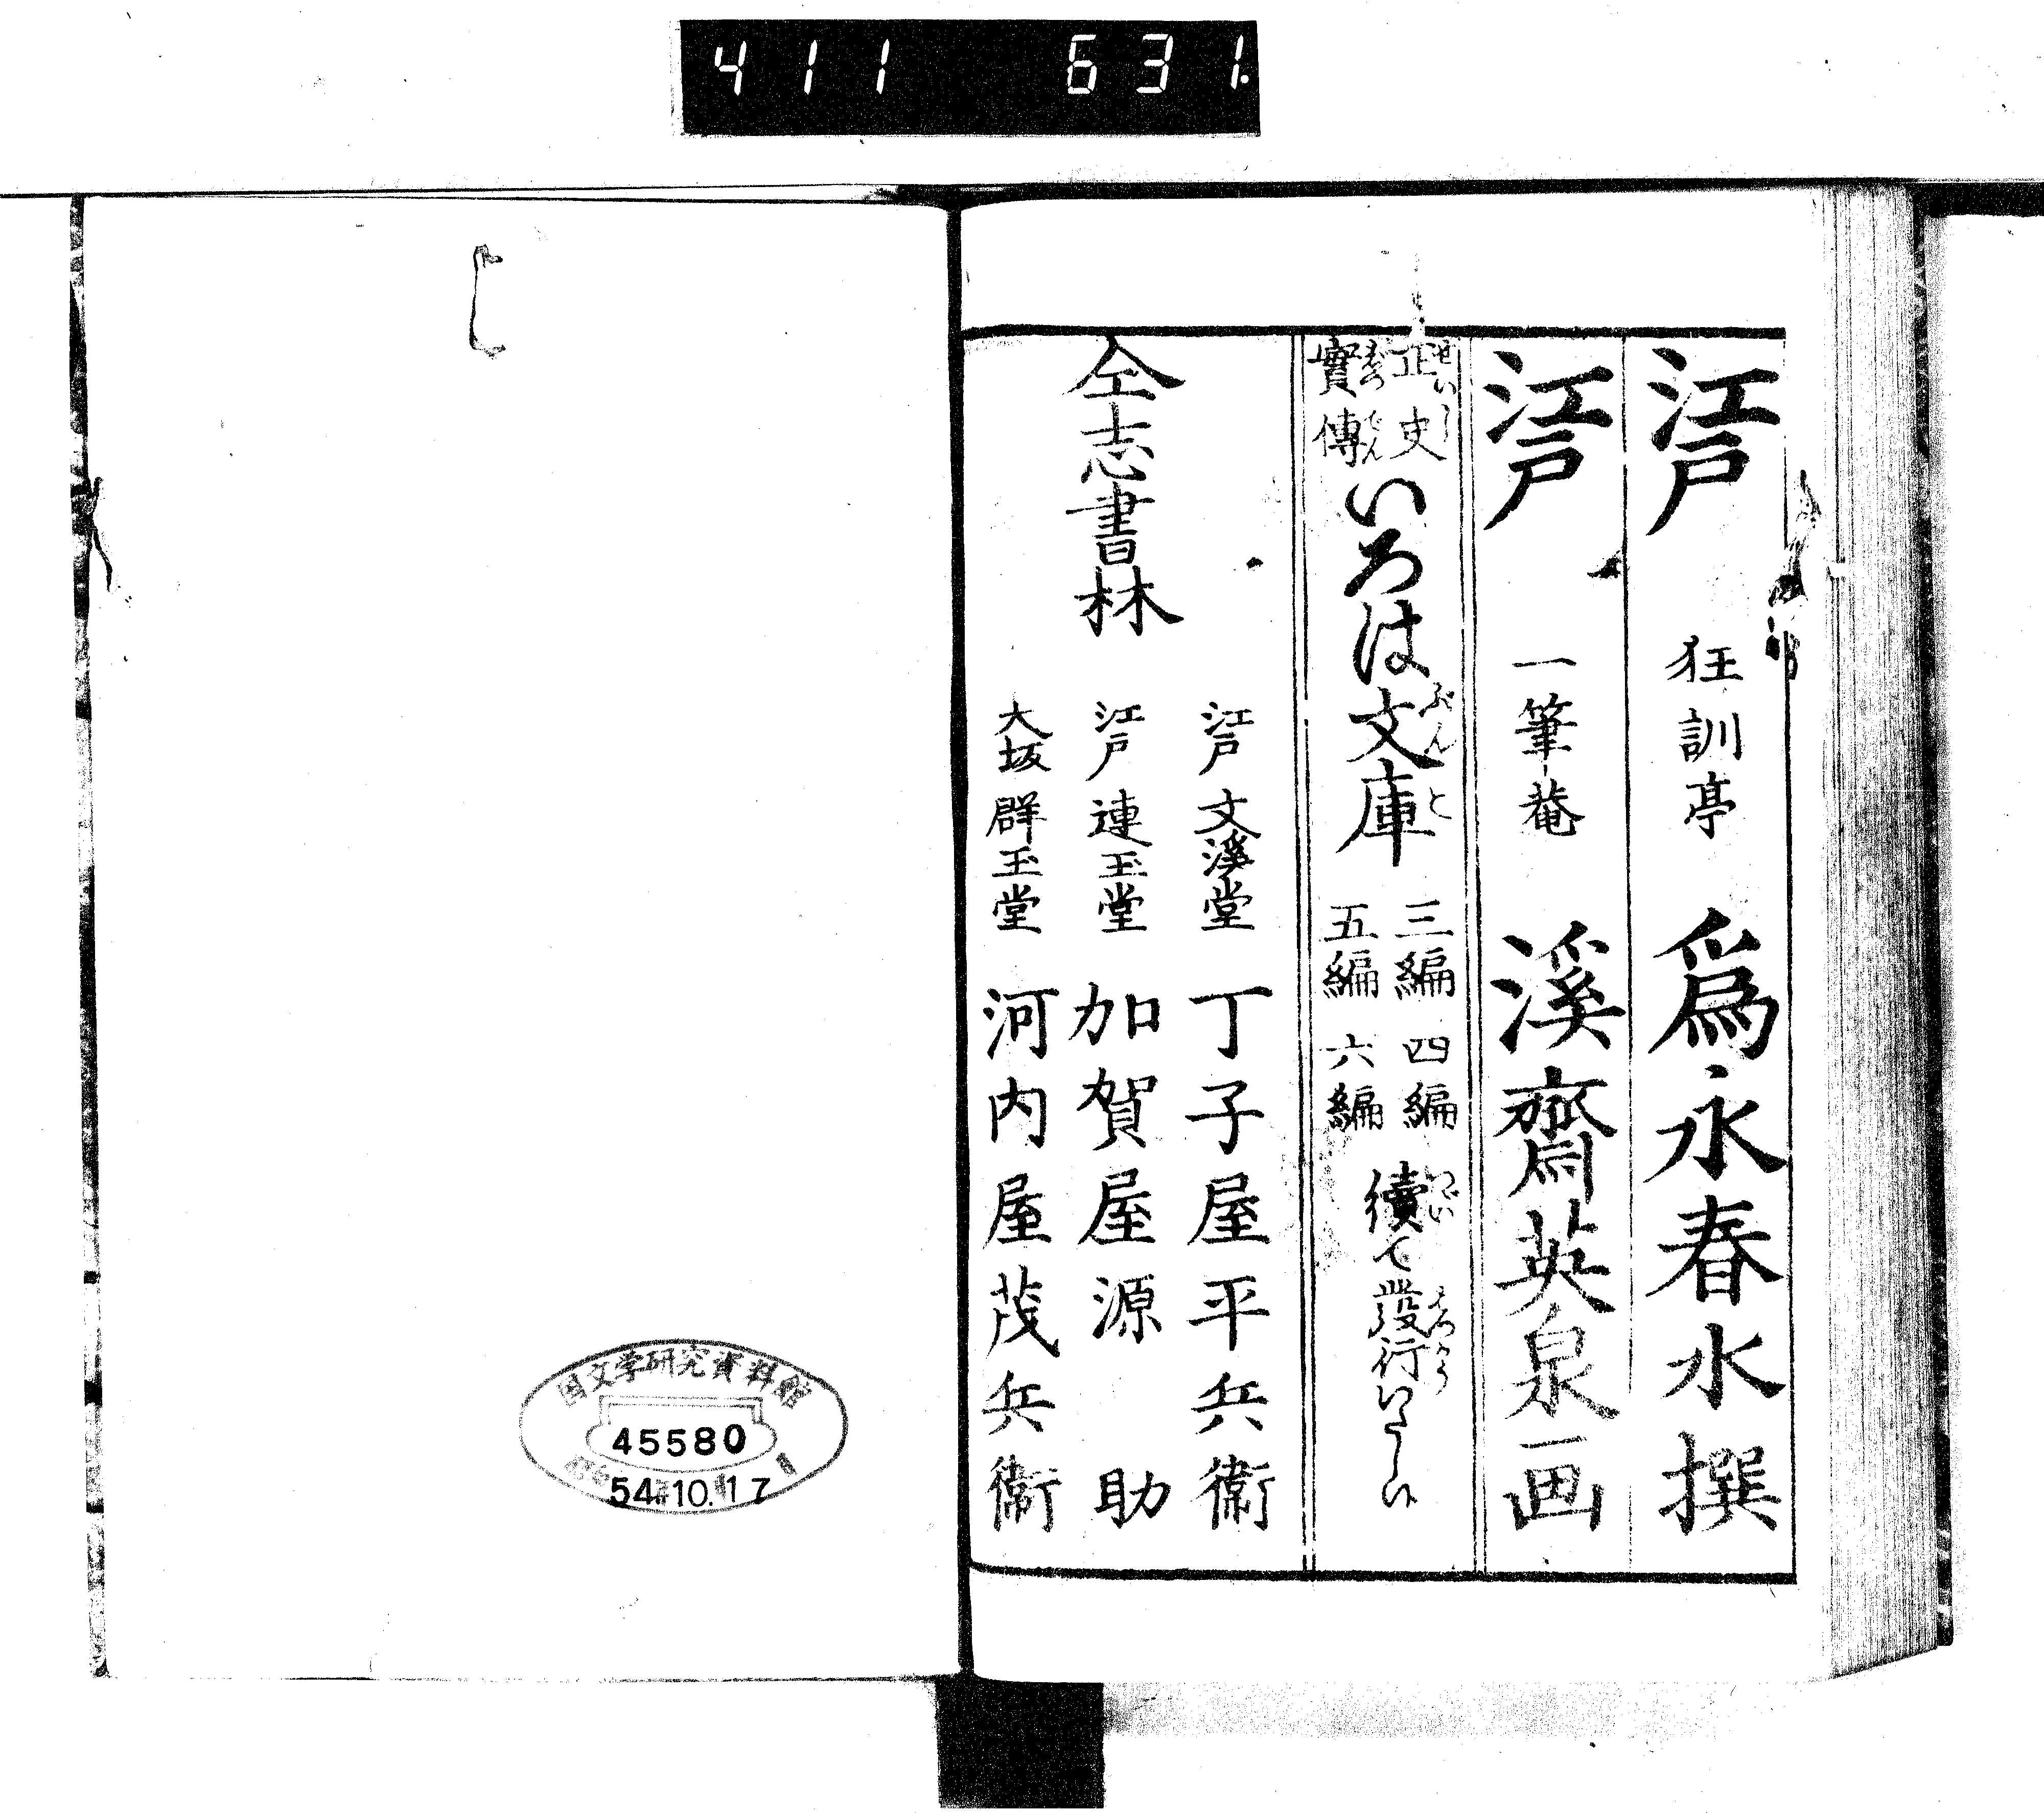 411 631.
江戸 狂訓亭 爲永春水撰
江戸 一筆菴 溪齋英泉画
正史 せいし
實傳 じつでん
いろは文庫 ぶんこ
三編 四編
五編 六編
續て發行いたし候
仝志書林
江戸 文溪堂 丁子屋平兵衛
江戸 連玉堂 加賀屋源助
大坂 群玉堂 河内屋茂兵衛
国文学研究資料館
45580
54.10.17